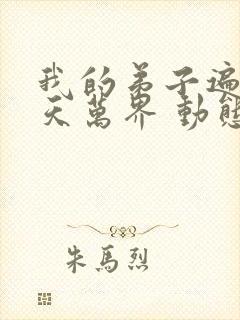 我的弟子遍
天萬界 動態
朱馬烈